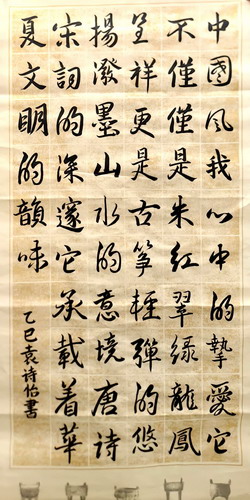 中國风我心中的摯愛它
不僅僅是朱紅翠緑龍鳳
呈祥更是古筝輕彈的悠
揚潑墨山水的意境唐诗
宋詞的深邃它承載着華
夏文明的韻味
乙巳袁诗怡書